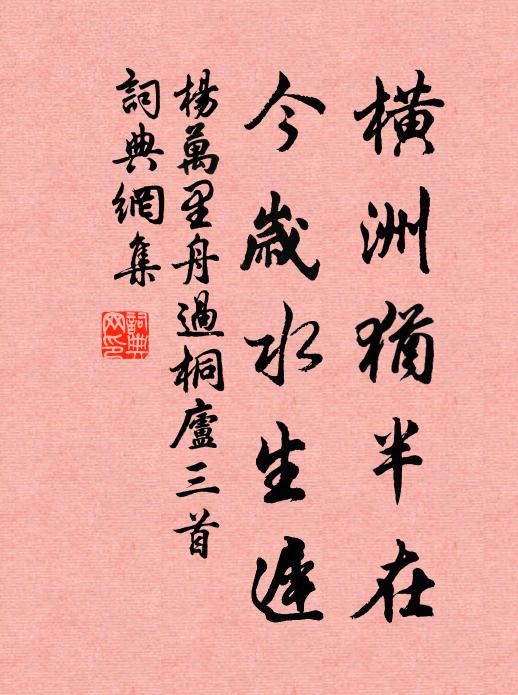 橫洲猶半在
今歲水生遲
楊萬里舟過桐廬三首
詞典網集
詞典网印